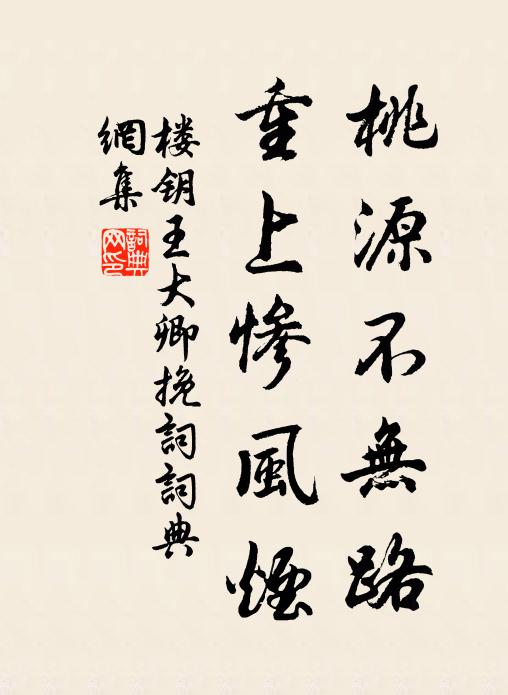 桃源不無路
重上惨風煙
楼钥王大卿挽詞詞典
網集
詞典
网印